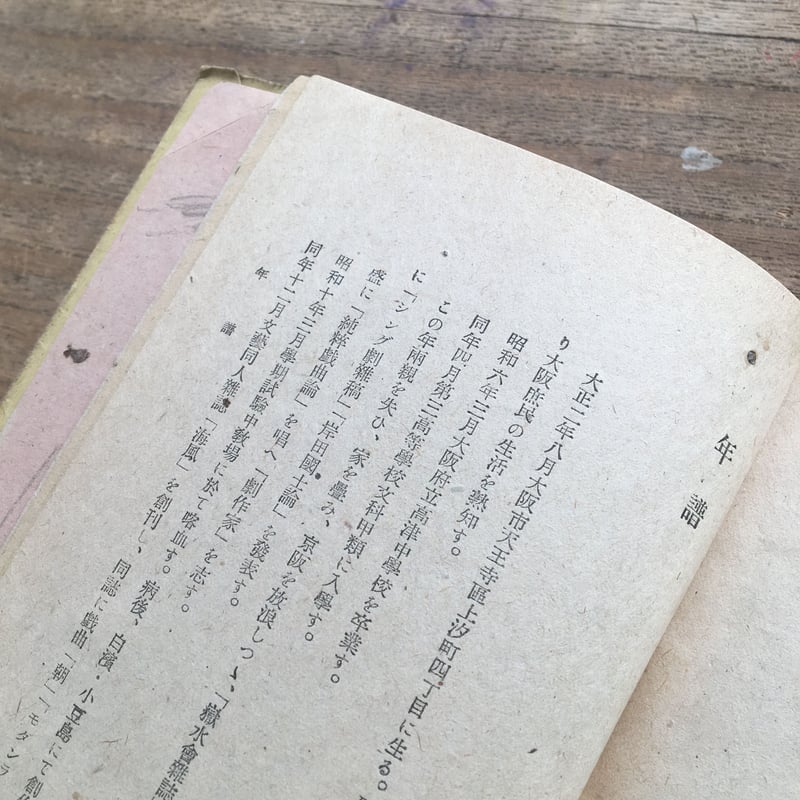 年譜
大正二年八月大阪市天王寺區上汐町四丁目に生る。
り大阪庶民の生活を熟知す。
昭和六年三月大阪府立高津中學校を卒業す。
同年四月第三高等學校文科甲類に入學す。
この年兩親を失ひ、家を疊み、京阪を放浪しつゝ、「嶽水會雜誌
に「シング劇雜稿」「岸田國士論」を發表す。
盛に「純粹戯曲論」を唱へ「劇作家」を志す。
昭和十年三月學期試驗中敎場に於て喀血す。病後、白濱・小豆島にて創
同年十二月文藝同人雜誌「海風」を創刊し、同誌に戯曲「朝」「モダンラ
年譜